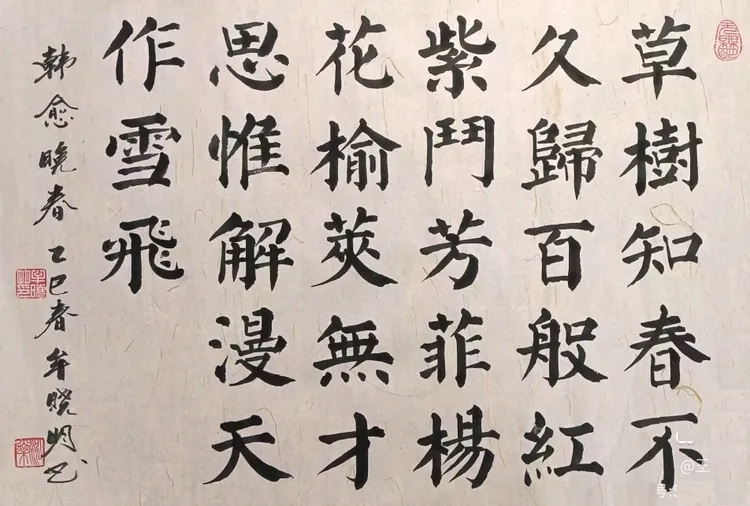 草樹知春不
久歸百般紅
紫鬥芳菲楊
花榆莢無才
思惟解漫天
作雪飛
韩愈晚春 乙巳春 牟晓明书
@王